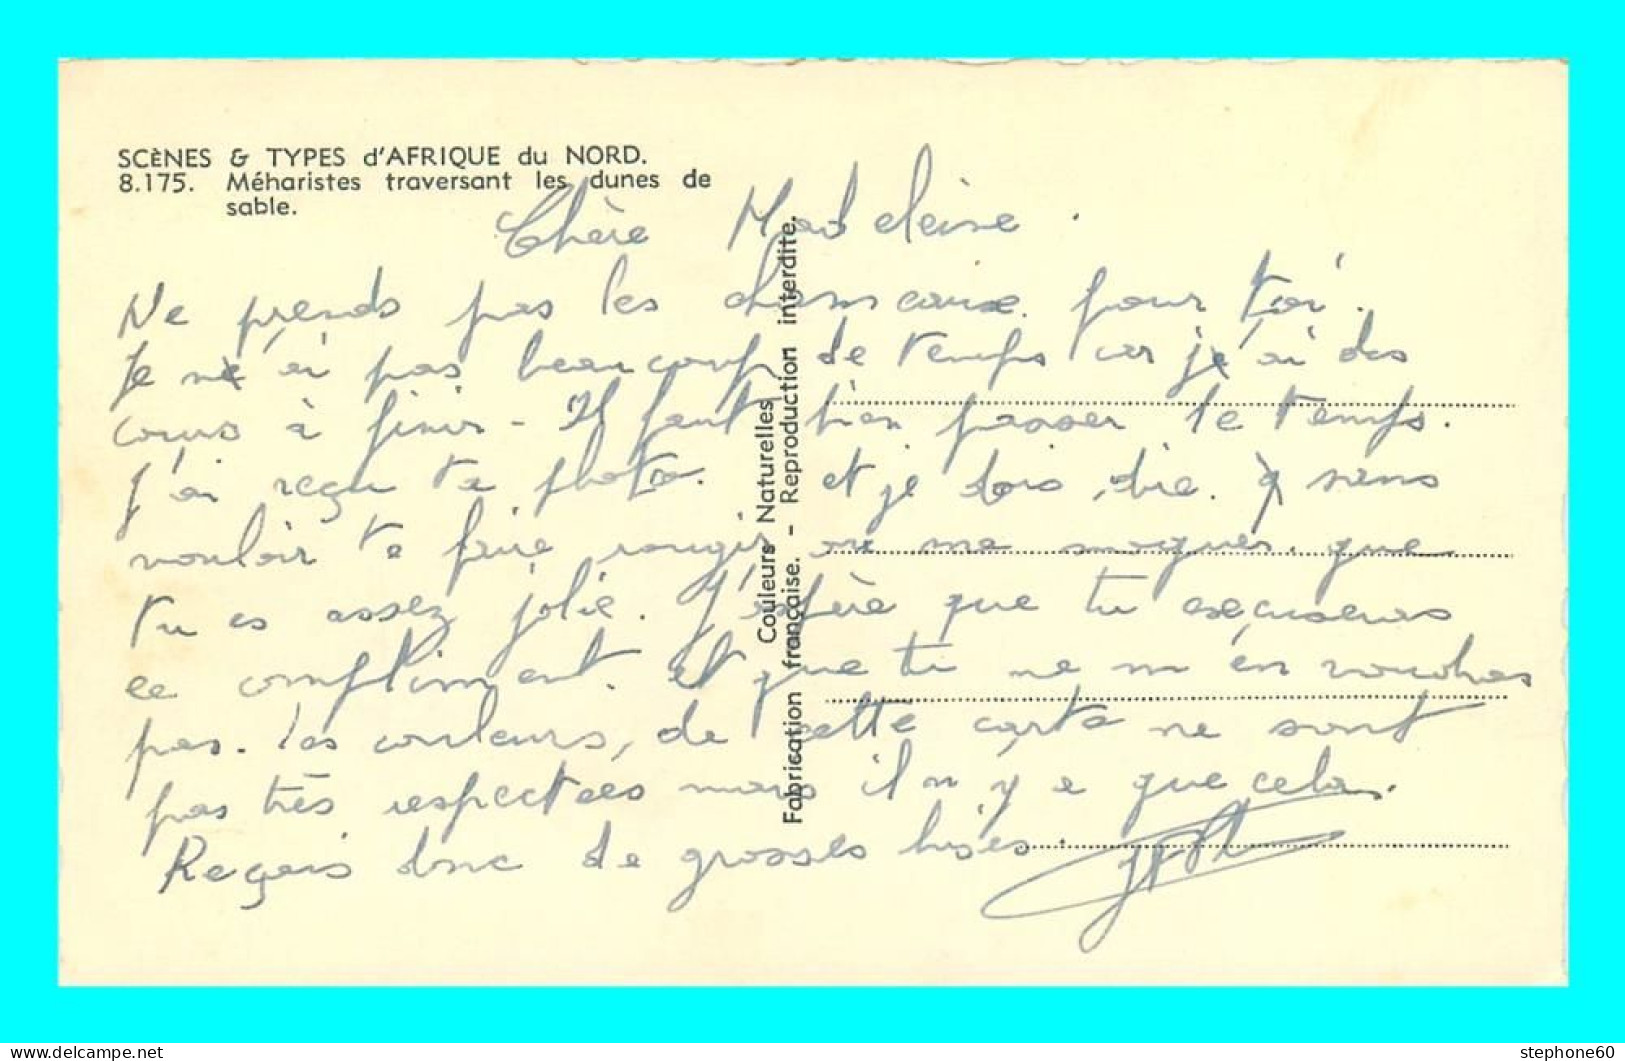 SCÈNES & TYPES d'AFRIQUE du NORD.
8.175. Méharistes traversant les dunes de
sable.
Chère Madeleine.
Ne prends pas les chameaux pour toi.
Je n'ai pas beaucoup de temps car j'ai des
cours à finir - Il faut bien passer le temps.
J'ai reçu ta photo. et je dois dire. sens
vouloir te faire rougir ou me moquer. que
tu es assez jolie. J'espère que tu excuseras
ce compliment. et que tu ne m'en voudras
pas. Les couleurs, de cette carte ne sont
pas très respectées mais il n'y a que cela.
Reçois donc de grosses bises.
Couleurs Naturelles
Fabrication française. - Reproduction interdite.
stephone60